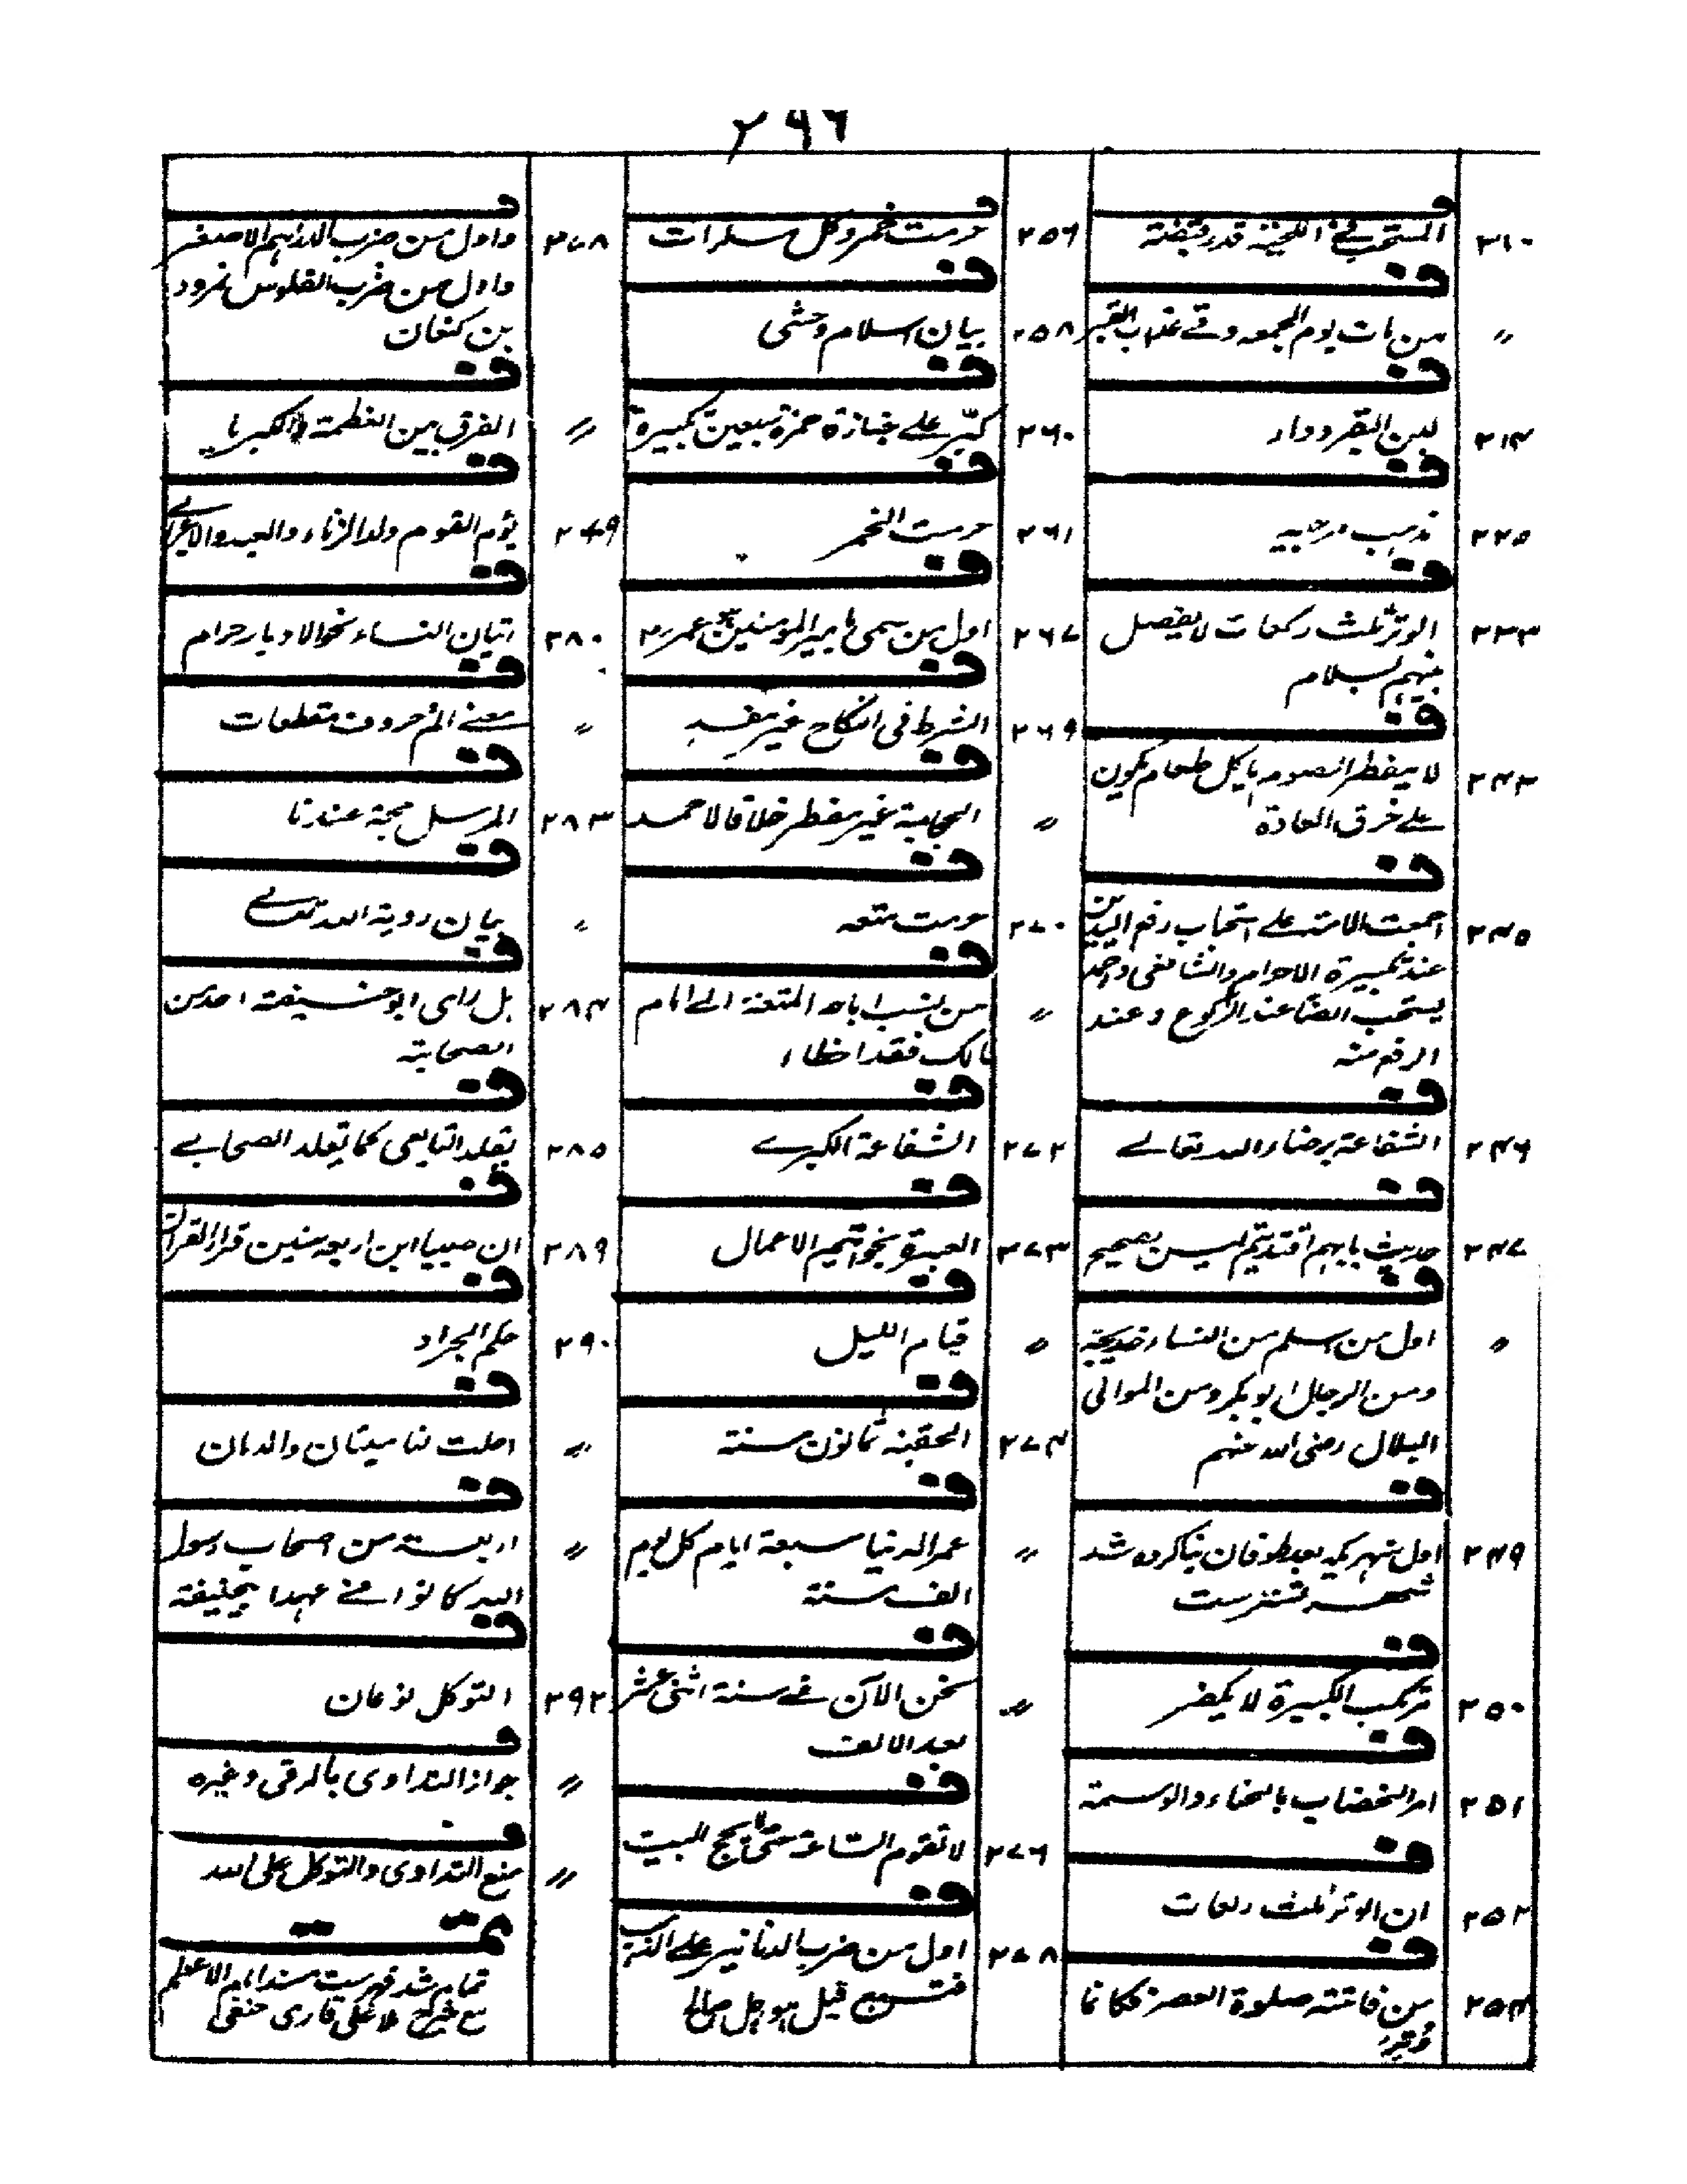 ۲۹۶
۲۱۰ المستحب فی اللحیة قدر قبضة
ف
〃 من مات یوم الجمعه وقی عذاب القبر
ف
۲۱۴ لبن البقر دواء
ف
۲۲۵ مذهب مرجیه
ف
۲۳۳ الوتر ثلث رکعات لا یفصل
بینهم بسلام
ف
۲۴۳ لا یفطر الصوم باکل طعام یکون
علے خرق العادة
ف
۲۴۵ اجمعت الامة علے استحباب رفع الیدین
عند تکبیرة الاحرام والشافعی واحمد
یستحب ایضا عند الرکوع و عند
الرفع منه
ف
۲۴۶ الشفاعة برضاء الله تعالے
ف
۲۴۷ حدیث بایهم اقتدیتم لیس بصحیح
ف
〃 اول من اسلم من النساء خدیجة
ومن الرجال ابو بکر ومن الموالی
البلال رضی الله عنهم
ف
۲۴۹ اول شهر که بعد طوفان بنا کرده شد
تستر ست
ف
۲۵۰ مرتکب الکبیرة لا یکفر
ف
۲۵۱ امر الخضاب بالحناء والوسمة
ف
۲۵۲ ان الوتر ثلث رکعات
ف
۲۵۴ من فاتته صلوة العصر فکانما
وُتِرَ
ف
۲۵۶ حرمت خمر وکل مسکرات
ف
۲۵۸ بیان اسلام وحشی
ف
۲۶۰ کبّر علے جنازة حمزة سبعین تکبیرة
ف
۲۶۱ حرمت الخمر
ف
۲۶۷ اول من سمی بامیر المومنین عمر رض
ف
۲۶۹ الشرط فی النکاح غیر مفسد
ف
〃 الحجامة غیر مفطر خلافا لاحمد
ف
۲۷۰ حرمت متعه
ف
〃 من نسب اباحة المتعة الی امام
مالک فقد اخطاء
ف
۲۷۲ الشفاعة الکبرے
ف
۲۷۳ العبرة بخواتیم الاعمال
ف
〃 قیام اللیل
ف
۲۷۴ الحقبة ثمانون سنة
ف
〃 عمر الدنیا سبعة ایام کل یوم
الف سنة
ف
〃 نحن الآن فے سنة اثنی عشر
بعد الالف
ف
۲۷۶ لا تقوم الساعة حتی لا یحج البیت
ف
۲۷۸ اول من ضرب الدنانیر علے الذهب
تبع قیل هو جبل صالح
ف
۲۷۸ واول من ضرب الدراهم الاصغر
واول من ضرب الفلوس نمرود
بن کنعان
ف
〃 الفرق بین العظمة والکبریاء
ف
۲۷۹ یؤم القوم ولد الزناء والعبد والاعرابے
ف
۲۸۰ اتیان النساء نحو الادبار حرام
ف
〃 معنے الم حروف مقطعات
ف
۲۸۳ المرسل حجة عندنا
ف
〃 بیان رویة الله تعالے
ف
۲۸۴ بل رای ابو حنیفة احد من
الصحابة
ف
۲۸۵ یقلد التابعی کما یقلد الصحابے
ف
۲۸۹ ان صبیا ابن اربعة سنین قرأ القرآن
ف
۲۹۰ حکم الجراد
ف
〃 احلت لنا میتتان والدمان
ف
〃 اربعة من اصحاب رسول
الله کانوا فے عهد ابیحنیفة
ف
۲۹۲ التوکل نوعان
ف
〃 جواز التداوی بالرقی وغیره
ف
〃 منع التداوی والتوکل علی الله
تمت
تمام شد فهرست مسند امام الاعظم
مع شرح ملا علی قاری حنفی